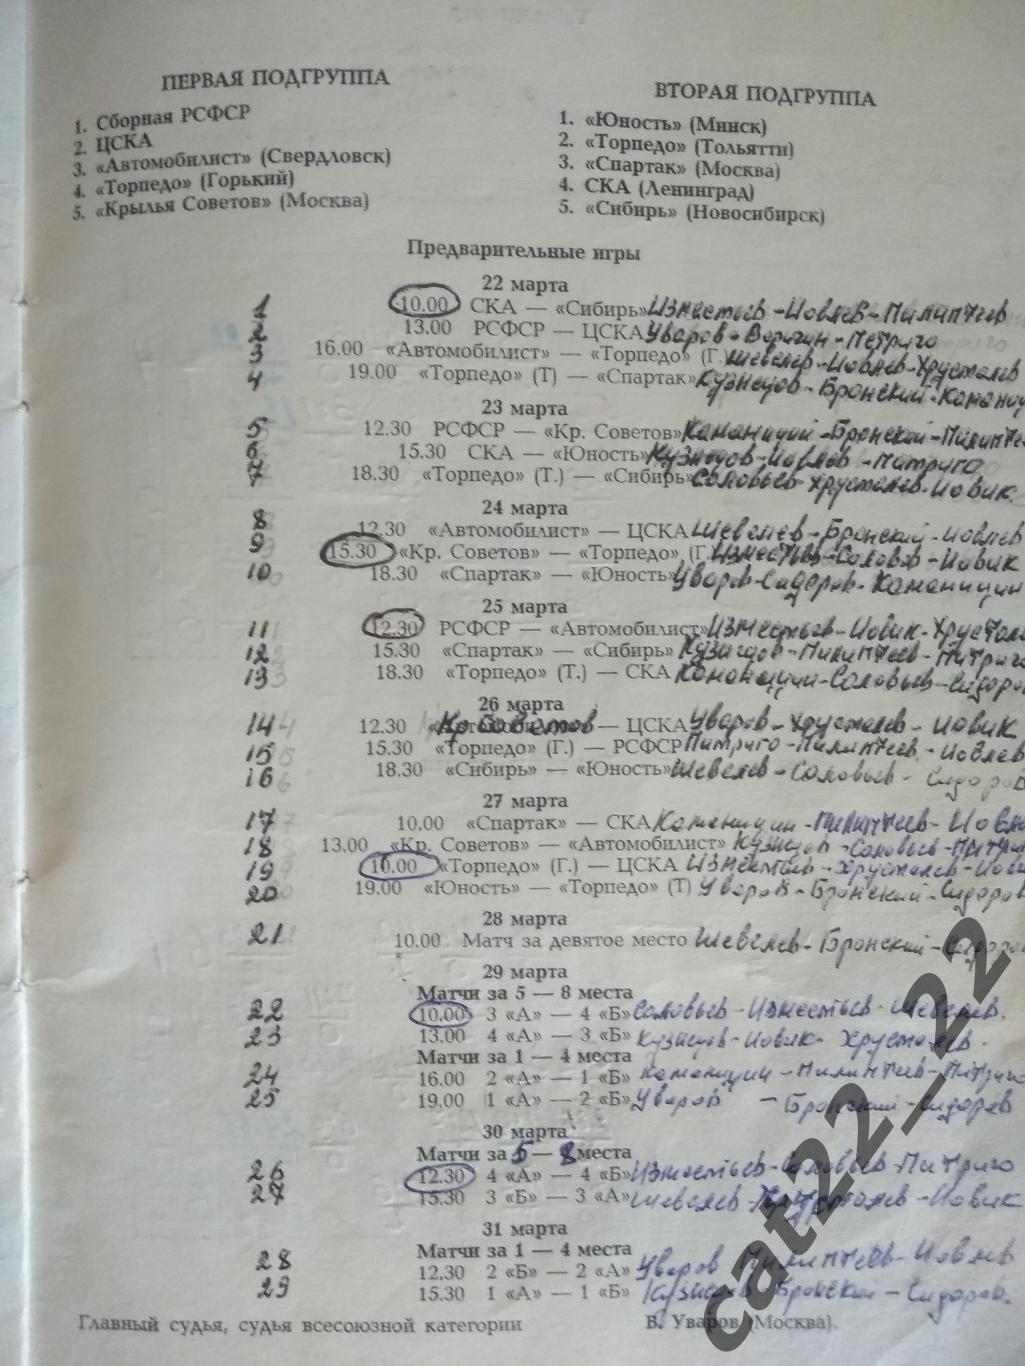 ПЕРВАЯ ПОДГРУППА
1. Сборная РСФСР
2. ЦСКА
3. «Автомобилист» (Свердловск)
4. «Торпедо» (Горький)
5. «Крылья Советов» (Москва)
ВТОРАЯ ПОДГРУППА
1. «Юность» (Минск)
2. «Торпедо» (Тольятти)
3. «Спартак» (Москва)
4. СКА (Ленинград)
5. «Сибирь» (Новосибирск)
Предварительные игры
22 марта
1 10.00 СКА — «Сибирь» Изместьев - Иовлев - Пилиптеев
2 13.00 РСФСР — ЦСКА Уваров - Веригин - Петриго
3 16.00 «Автомобилист» — «Торпедо» (Г. Шевелев - Иовлев - Хрусталев
4 19.00 «Торпедо» (Т) — «Спартак» Кузнецов - Бронский -
23 марта
5 12.30 РСФСР — «Кр. Советов» Каманиции - Бронский - Пилиптеев
6 15.30 СКА — «Юность» Кузнецов - Иовлев - Питриго
7 18.30 «Торпедо» (Т.) — «Сибирь» Соловьев - Хрусталев - Новик
24 марта
8 12.30 «Автомобилист» — ЦСКА Шевелев - Бронский - Иовлев
9 15.30 «Кр. Советов» — «Торпедо» (Г. Изместьев - Соловьев - Новик
10 18.30 «Спартак» — «Юность» Уваров - Сидоров - Каманицин
25 марта
11 12.30 РСФСР — «Автомобилист» Изместьев - Новик - Хрустале
12 15.30 «Спартак» — «Сибирь» Кузнецов - Пилиптеев - Питриго
13 18.30 «Торпедо» (Т.) — СКА Каманицин - Соловьев - Сидоров
26 марта
14 12.30 Кр Советов — ЦСКА Уваров - Хрусталев - Новик
15 15.30 «Торпедо» (Г.) — РСФСР Питриго - Пилиптеев - Иовлев
16 18.30 «Сибирь» — «Юность» Шевелев - Соловьев - Сидоров
27 марта
17 10.00 «Спартак» — СКА Каманицин - Пилиптеев - Иовле
18 13.00 «Кр. Советов» — «Автомобилист» Кузнецов - Соловьев - Питриг
19 10.00 «Торпедо» (Г.) — ЦСКА Изместьев - Хрусталев - Нови
20 19.00 «Юность» — «Торпедо» (Т) Уваров - Бронский - Сидоров
28 марта
21 10.00 Матч за девятое место Шевелев - Бронский - Сидоров
29 марта
Матчи за 5 — 8 места
22 10.00 3 «А» — 4 «Б» Соловьев - Изместьев - Шевелев.
23 13.00 4 «А» — 3 «Б» Кузнецов - Новик - Хрусталев.
Матчи за 1 — 4 места
24 16.00 2 «А» — 1 «Б» Каманицин - Пилиптеев - Питриго
25 19.00 1 «А» — 2 «Б» Уваров - Бронский - Сидоров
30 марта
Матчи за 5 — 8 места
26 12.30 4 «А» — 4 «Б» Изместьев - Соловьев - Питриго
27 15.30 3 «Б» — 3 «А» Шевелев - Хрусталев - Новик
31 марта
Матчи за 1 — 4 места
28 12.30 2 «Б» — 2 «А» Уваров Пилиптеев - Иовлев
29 15.30 1 «А» — 1 «Б» Кузнецов Бронский - Сидоров.
Главный судья, судья всесоюзной категории В. Уваров (Москва).
cat22_22